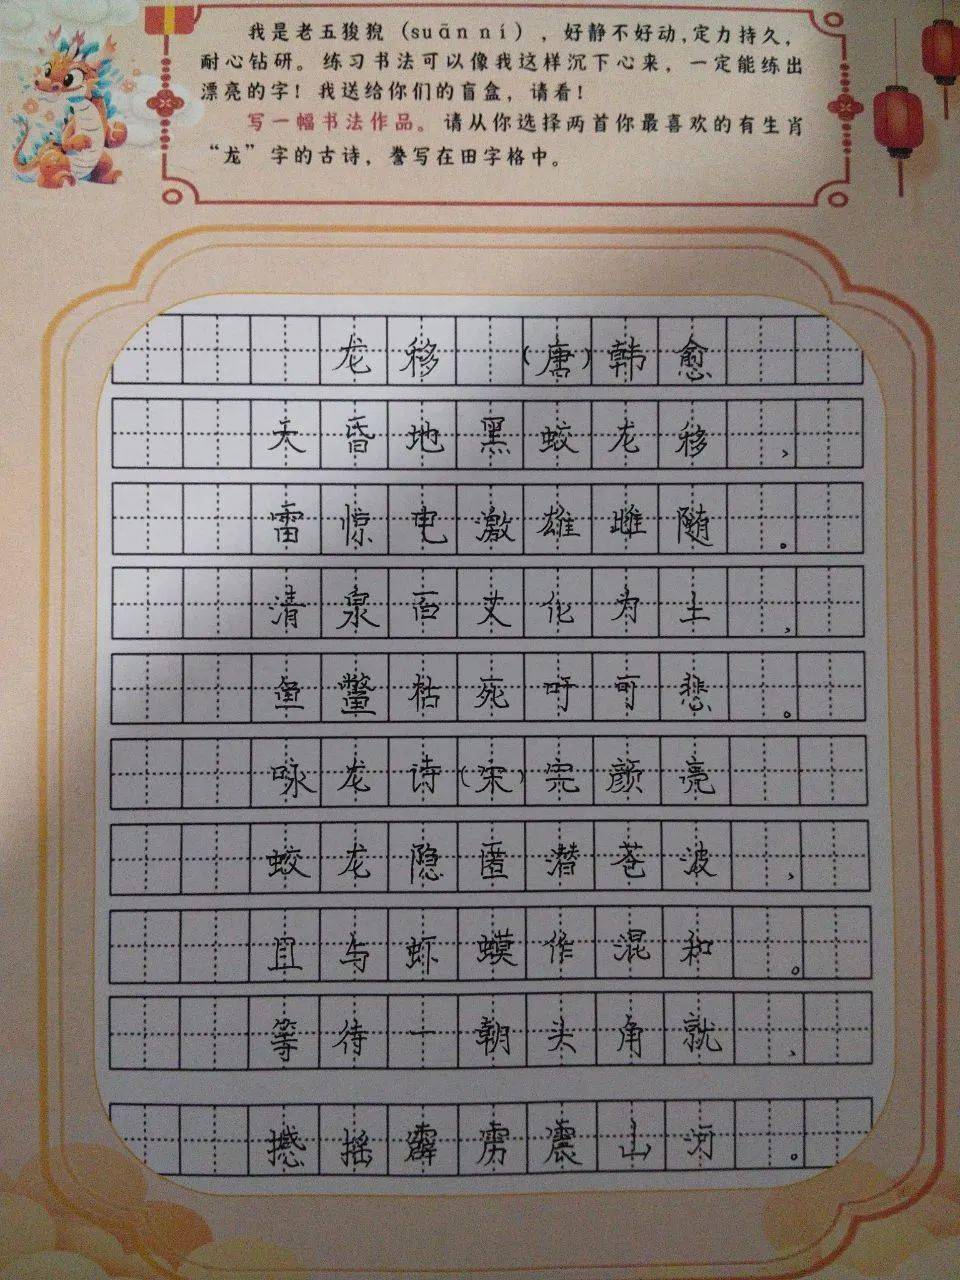 我是老五狻猊（suān ní），好静不好动，定力持久，
耐心钻研。练习书法可以像我这样沉下心来，一定能练出
漂亮的字！我送给你们的盲盒，请看！
写一幅书法作品。请从你选择两首你最喜欢的有生肖
“龙”字的古诗，誊写在田字格中。
龙移（唐）韩愈
天昏地黑蛟龙移，
雷惊电激雄雌随。
清泉百丈化为土，
鱼鳖枯死吁可悲。
咏龙诗（宋）完颜亮
蛟龙隐匿潜苍波，
且与虾蟆作混和。
等待一朝头角就，
撼摇霹雳震山河。